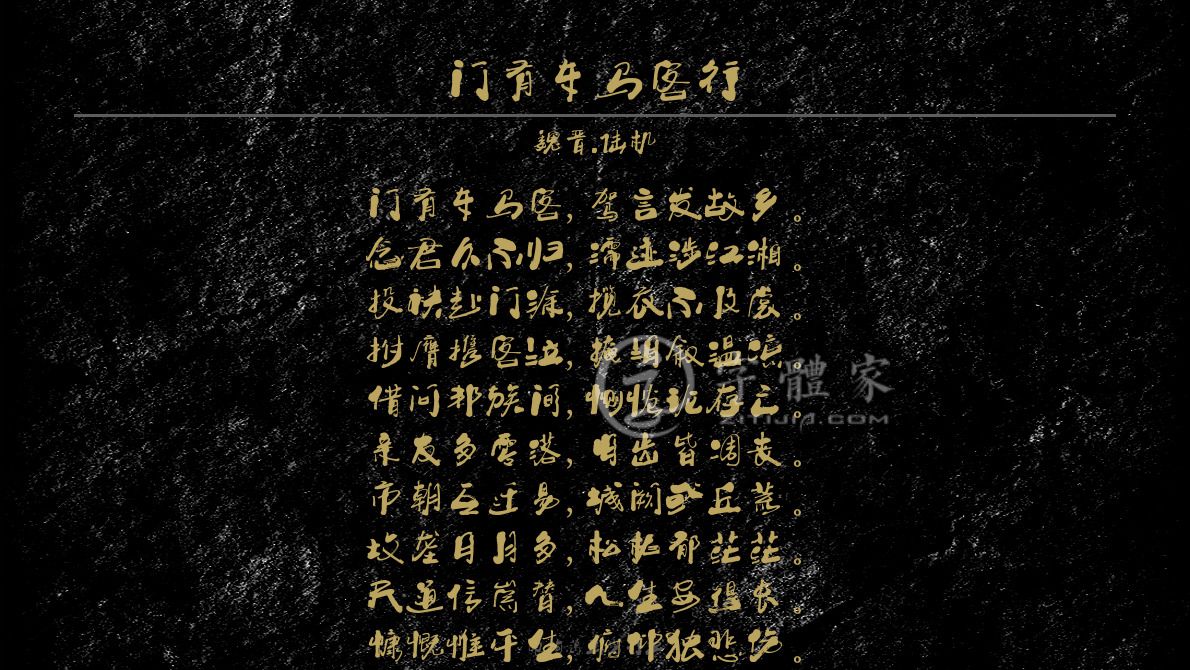 门有车马客行
魏晋.陆机
门有车马客，驾言发故乡。
念君久不归，濡迹涉江湘。
投袂赴门涂，揽衣不及裳。
拊膺携客泣，掩泪叙温凉。
借问邦族间，恻怆论存亡。
亲友多零落，旧齿皆凋丧。
市朝互迁易，城阙或丘荒。
坟垄日月多，松柏郁茫茫。
天道信崇替，人生安得长。
慷慨惟平生，俯仰独悲伤。
字體家
ZITIJIA.COM